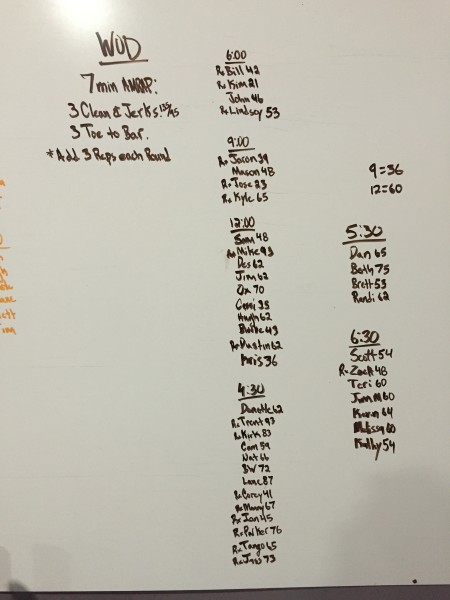 WOD
7 min AMRAP:
3 Clean & Jerks 135/95
3 Toe to Bar.
* Add 3 Reps each Round
6:00
Rx Bill 42
Rx Kim 21
John 46
Rx Lindsey 53
9:00
Rx Jason 39
Mason 48
Rx Jose 23
Rx Kyle 65
12:00
Sam 48
Rx Mike 93
Des 62
Jim 62
Ox 70
Hugh 62
Rx Dustin 62
Paris 36
4:30
Danette 62
Rx Trent 93
Rx Kirk 83
Cam 59
Nat 66
BW 72
Lane 87
Rx Corey 41
Rx Manny 67
Rx Jan 45
Rx Parker 76
Rx Tango 65
73
9=36
12=60
5:30
Dan 65
Beth 75
Brett 53
Randi 62
6:30
Scott 54
Rx Zach 48
Teri 60
60
Karen 64
Melissa 60
Kathy 54